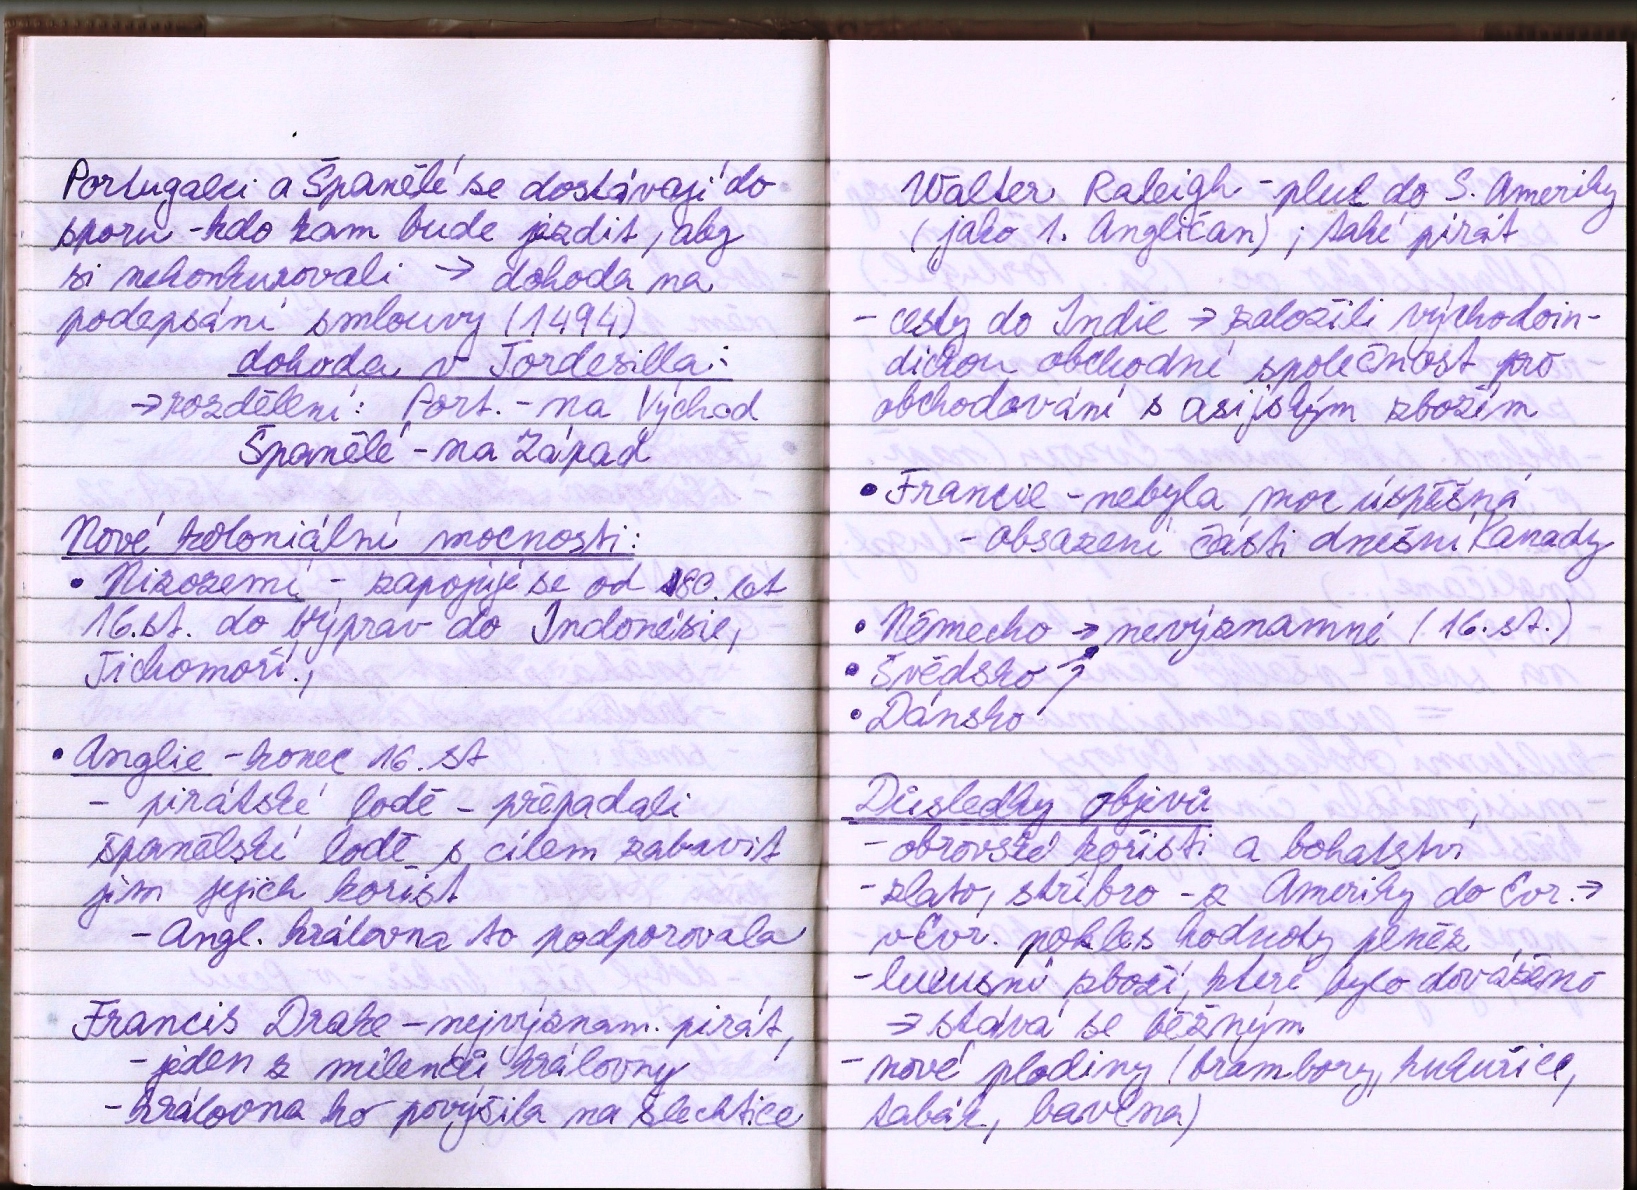 Portugalci a Španělé se dostávají do
sporu - kdo kam bude jezdit, aby
si nekonkurovali → dohoda na
podepsání smlouvy (1494)
dohoda v Tordesilla:
→ rozdělení: Port. - na Východ
Španělé - na Západ
Nové koloniální mocnosti:
• Nizozemí - zapojují se od 80. let
16. st. do výprav do Indonésie,
Tichomoří.,
• Anglie - konec 16. st
- pirátské lodě - přepadali
španělské lodě s cílem zabavit
jim jejich kořist
- Angl. královna to podporovala
Francis Drake - nejvýznam. pirát,
- jeden z milenců královny
- královna ho povýšila na šlechtice
Walter Raleigh - plul do S. Ameriky
(jako 1. Angličan) ; také pirát
- cesty do Indie → založili východoin-
dickou obchodní společnost pro
obchodování s asijským zbožím
• Francie - nebyla moc úspěšná
- obsazení části dnešní Kanady
• Německo → nevýznamné (16. st.)
• Švédsko ↗
• Dánsko
Důsledky objevů
- obrovské kořisti a bohatství
- zlato, stříbro - z Ameriky do Evr. →
v Evr. pokles hodnoty peněz
- luxusní zboží, které bylo dováženo
→ stává se běžným
- nové plodiny (brambory, kukuřice,
tabák, bavlna)